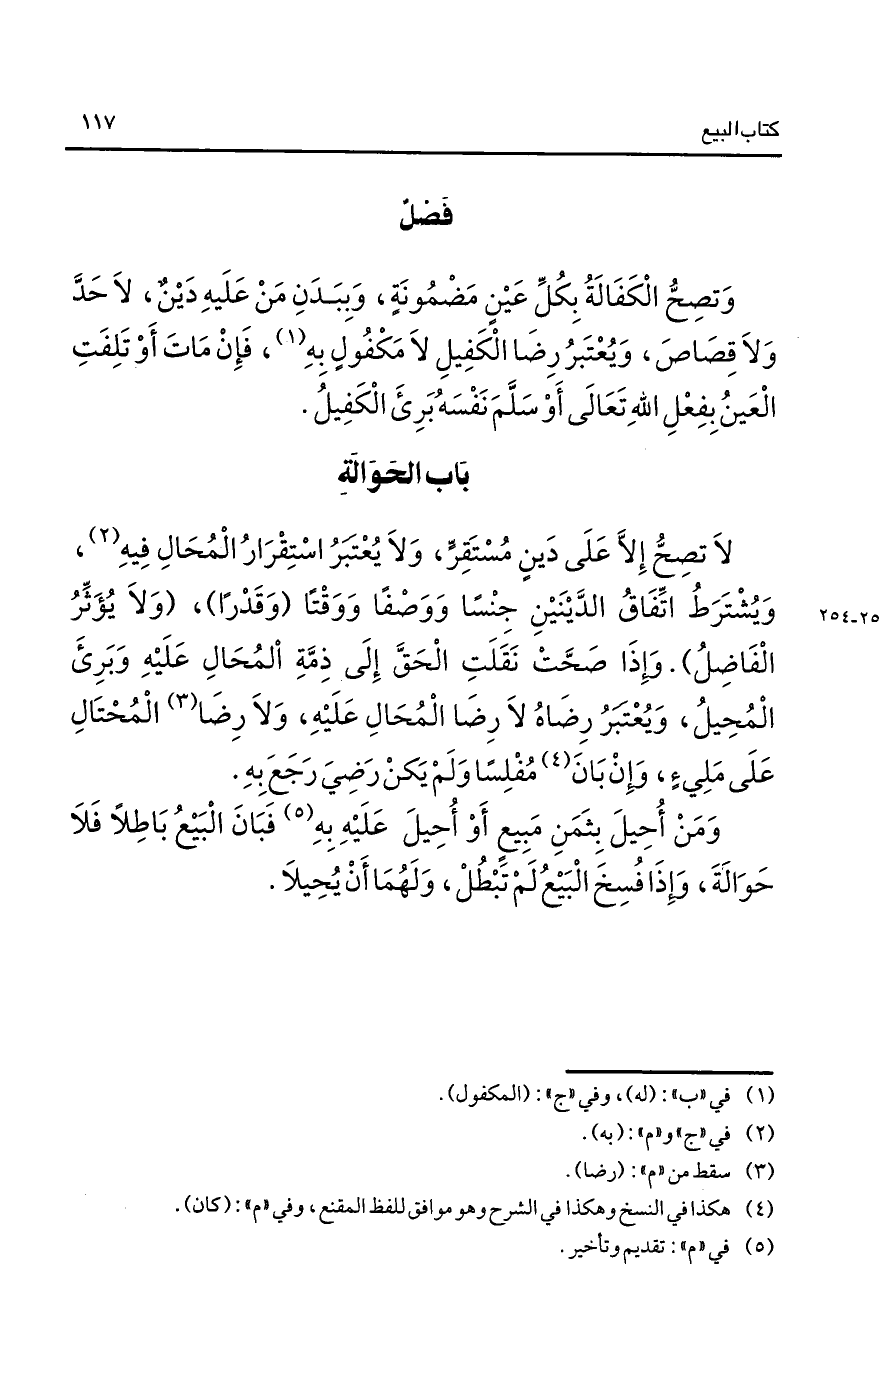 كتاب البيع ١١٧
فَصْلٌ
وَتَصِحُّ الْكَفَالَةُ بِكُلِّ عَيْنٍ مَضْمُونَةٍ، وَبِبَدَنِ مَنْ عَلَيهِ دَيْنٌ، لاَ حَدَّ
وَلاَ قِصَاصَ، وَيُعْتَبَرُ رِضَا الْكَفِيلِ لاَ مَكْفُولٍ بِهِ(١)، فَإِنْ مَاتَ أَوْ تَلِفَتِ
الْعَينُ بِفِعْلِ اللهِ تَعَالَى أَوْ سَلَّمَ نَفْسَهُ بَرِئَ الْكَفِيلُ.
بَاب الحَوَالَةِ
لاَ تَصِحُّ إِلاَّ عَلَى دَينٍ مُسْتَقِرٍّ، وَلاَ يُعْتَبَرُ اسْتِقْرَارُ الْمُحَالِ فِيهِ(٢)،
وَيُشْتَرَطُ اتِّفَاقُ الدَّيْنَيْنِ جِنْسًا وَوَصْفًا وَوَقْتًا (وَقَدْرًا)، (وَلاَ يُؤَثِّرُ
٢٥-٢٥٤
الْفَاضِلُ). وَإِذَا صَحَّتْ نَقَلَتِ الْحَقَّ إِلَى ذِمَّةِ اْلمُحَالِ عَلَيْهِ وَبَرِئَ
الْمُحِيلُ، وَيُعْتَبَرُ رِضَاهُ لاَ رِضَا الْمُحَالِ عَلَيْهِ، وَلاَ رِضَا(٣) الْمُحْتَالِ
عَلَى مَلِيءٍ، وَإِنْ بَانَ(٤) مُفْلِسًا وَلَمْ يَكنْ رَضِيَ رَجَعَ بِهِ.
وَمَنْ أُحِيلَ بِثَمَنِ مَبِيعٍ أَوْ أُحِيلَ عَلَيْهِ بِهِ(٥) فَبَانَ الْبَيْعُ بَاطِلاً فَلاَ
حَوَالَةَ، وَإِذَا فُسِخَ الْبَيْعُ لَمْ تَبْطُلْ، وَلَهُمَا أَنْ يُحِيلاَ.
(١) في «ب»: (له)، وفي «ج»: (المكفول).
(٢) في «ج» و«م»: (به).
(٣) سقط من «م»: (رضا).
(٤) هكذا في النسخ وهكذا في الشرح وهو موافق للفظ المقنع، وفي «م»: (كان).
(٥) في «م»: تقديم وتأخير.